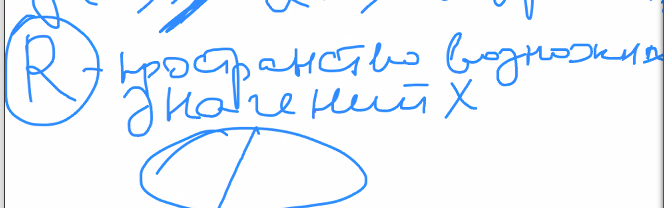 R - пространство возможн
значений X